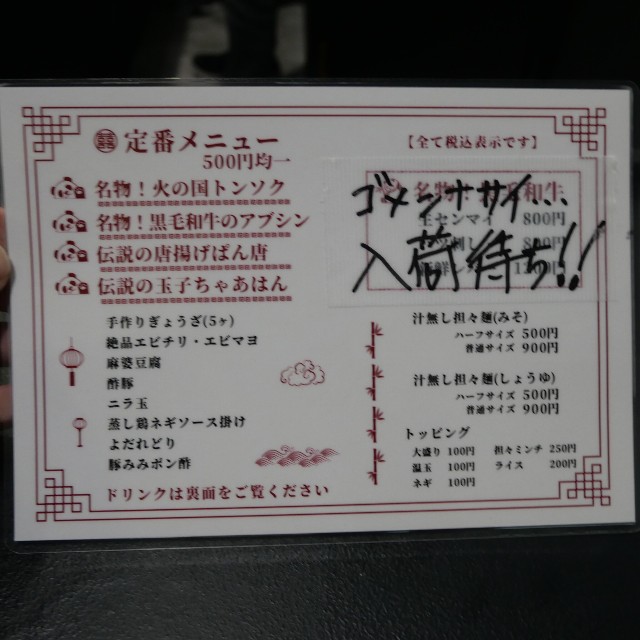 定番メニュー
500円均一
名物！火の国トンソク
名物！黒毛和牛のアブシン
伝説の唐揚げぱん唐
伝説の玉子ちゃあはん
手作りぎょうざ(5ヶ)
絶品エビチリ・エビマヨ
麻婆豆腐
酢豚
ニラ玉
蒸し鶏ネギソース掛け
よだれどり
豚みみポン酢
ドリンクは裏面をご覧ください
【全て税込表示です】
ゴメンナサイ...
入荷待ち!!
和牛
センマイ 800円
汁無し担々麺(みそ)
ハーフサイズ 500円
普通サイズ 900円
汁無し担々麺(しょうゆ)
ハーフサイズ 500円
普通サイズ 900円
トッピング
大盛り 100円 担々ミンチ 250円
温玉 100円 ライス 200円
ネギ 100円